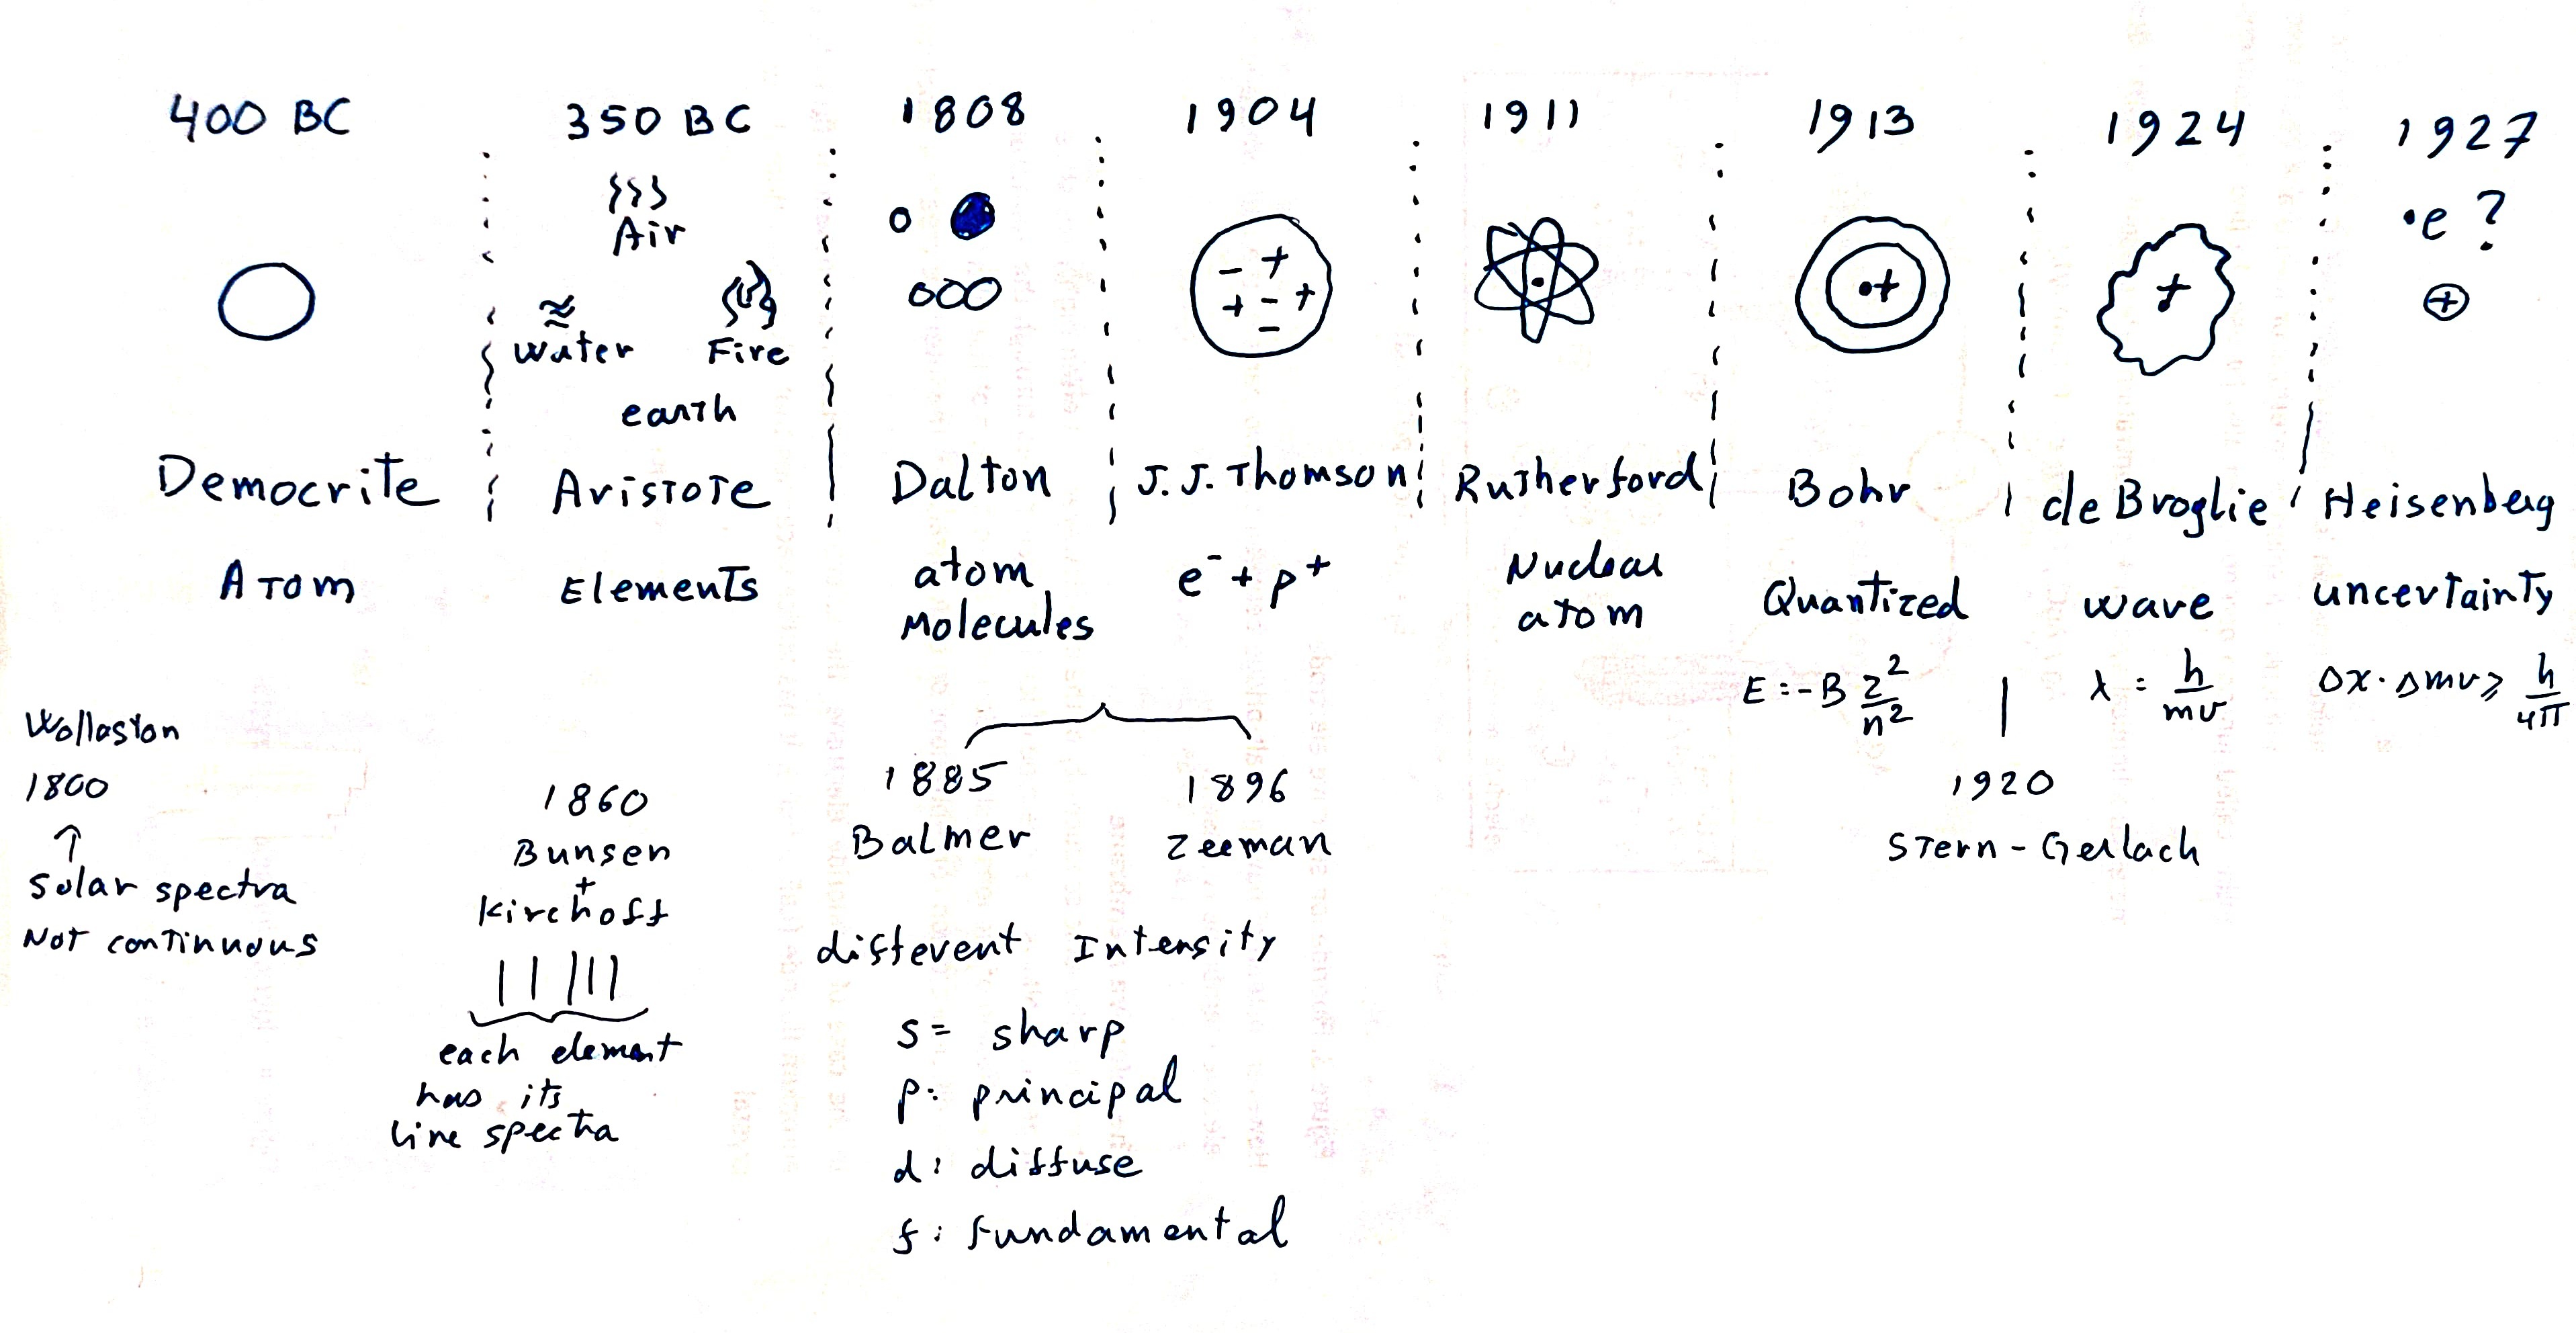 400 BC
350 BC
1808
1904
1911
1913
1924
1927
Air
Water
Fire
earth
- +
+ - +
-
•+
+
•e ?
+
Democrite
Aristote
Dalton
J.J. Thomson
Rutherford
Bohr
de Broglie
Heisenberg
Atom
Elements
atom
Molecules
e⁻ + p⁺
Nuclear
atom
Quantized
wave
uncertainty
E = -B Z²/n²
λ = h/mv
Δx · Δmv ≥ h/4π
Wollaston
1800
↑
Solar spectra
Not continuous
1860
Bunsen
+
Kirchoff
each element
has its
line spectra
1885
Balmer
1896
Zeeman
different Intensity
s = sharp
p: principal
d: diffuse
f: fundamental
1920
Stern - Gerlach